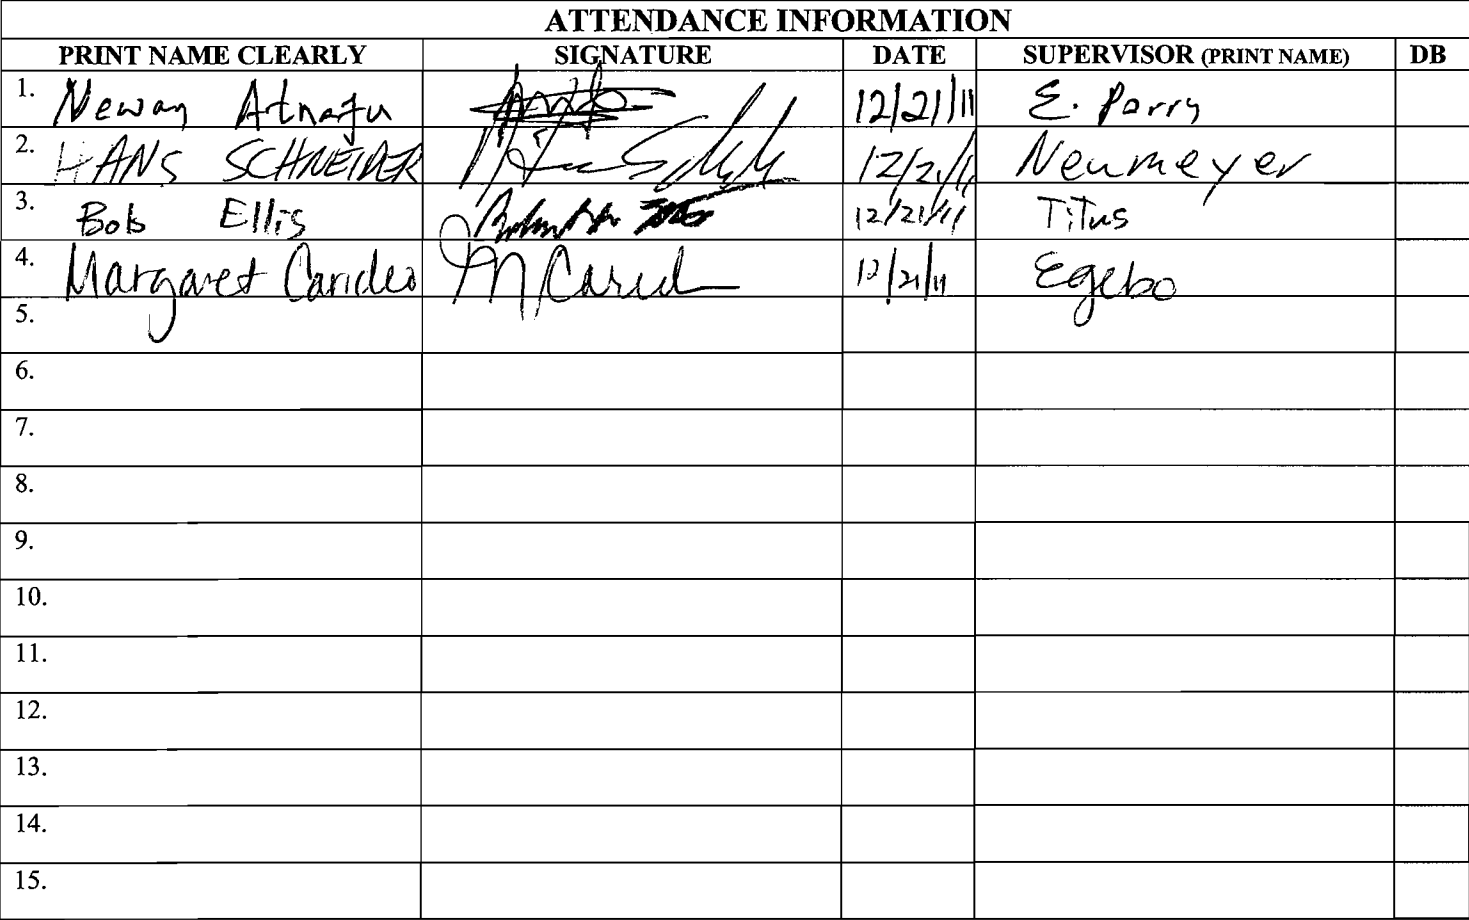 ATTENDANCE INFORMATION
PRINT NAME CLEARLY SIGNATURE DATE SUPERVISOR (PRINT NAME) DB
1. Neway Atnafu 12/21/11 E. Parry
2. HANS SCHNEIDER 12/21/11 Neumeyer
3. Bob Ellis 12/21/11 Titus
4. Margaret Carideo M Carid 12/21/11 Egebo
5.
6.
7.
8.
9.
10.
11.
12.
13.
14.
15.